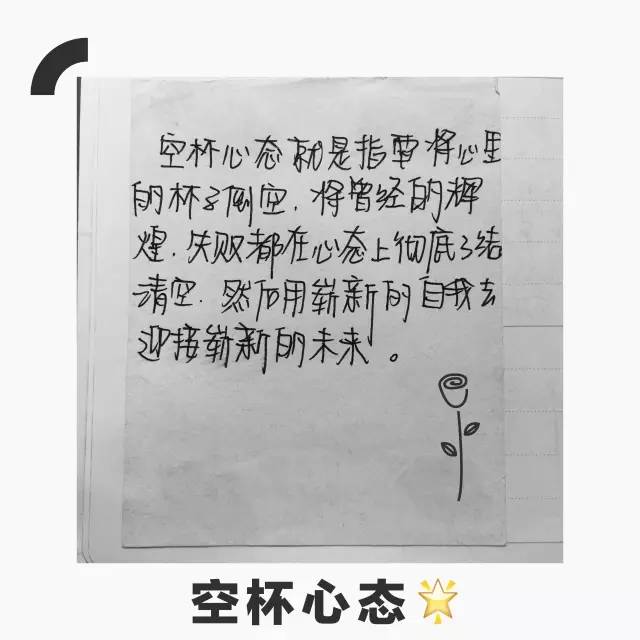 空杯心态就是指要将心里
的杯子倒空.将曾经的辉
煌.失败都在心态上彻底了结
清空.然后用崭新的自我去
迎接崭新的未来。
空杯心态🌟